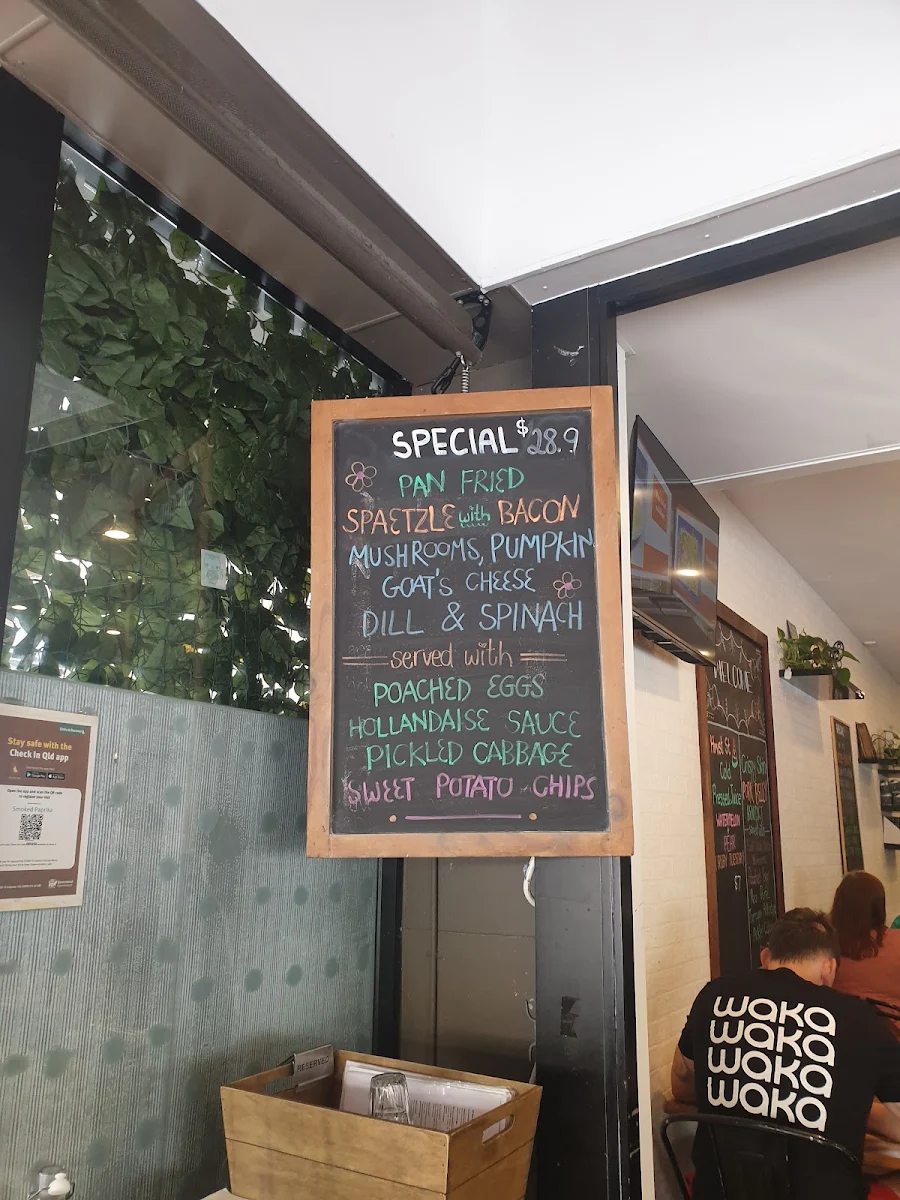 SPECIAL $28.9
PAN FRIED
SPAETZLE with BACON
MUSHROOMS, PUMPKIN
GOAT'S CHEESE
DILL & SPINACH
served with
POACHED EGGS
HOLLANDAISE SAUCE
PICKLED CABBAGE
SWEET POTATO CHIPS
Stay safe with the
Check In Qld app
Smoked Paprika
RESERVED
WELCOME
Cold
Pressed Juice
WATERMELON
PEAR
$7
Crispy Skin
PORK BELLY
waka
waka
waka
waka